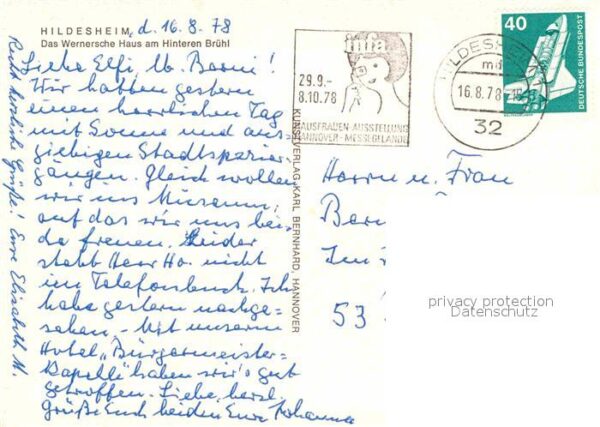 HILDESHEIM, d. 16.8.78
Das Wernersche Haus am Hinteren Brühl
Liebe Elfi, lb. Berni!
Wir hatten gestern
einen herrlichen Tag
mit Sonne und aus-
giebigen Stadtspazier-
gängen. Gleich wollen
wir ins Museum,
auf das wir uns bei-
de freuen. Leider
steht Herr Ho. nicht
im Telefonbuch. Ich
habe gestern nachge-
sehen. - Mit unserm
Hotel "Bürgermeister-
Kapelle" haben wir's gut
getroffen. Liebe, herzl.
Grüße Euch beiden Eure Johanna
Recht herzliche Grüße! Eure Elisabeth M.
KUNSTVERLAG KARL BERNHARD, HANNOVER
infa
29.9.-
8.10.78
HAUSFRAUEN-AUSSTELLUNG
HANNOVER-MESSEGELÄNDE
HILDESHEIM
16.8.78-18
32
40
DEUTSCHE BUNDESPOST
Herrn u. Frau
Ber
Im
53
privacy protection
Datenschutz